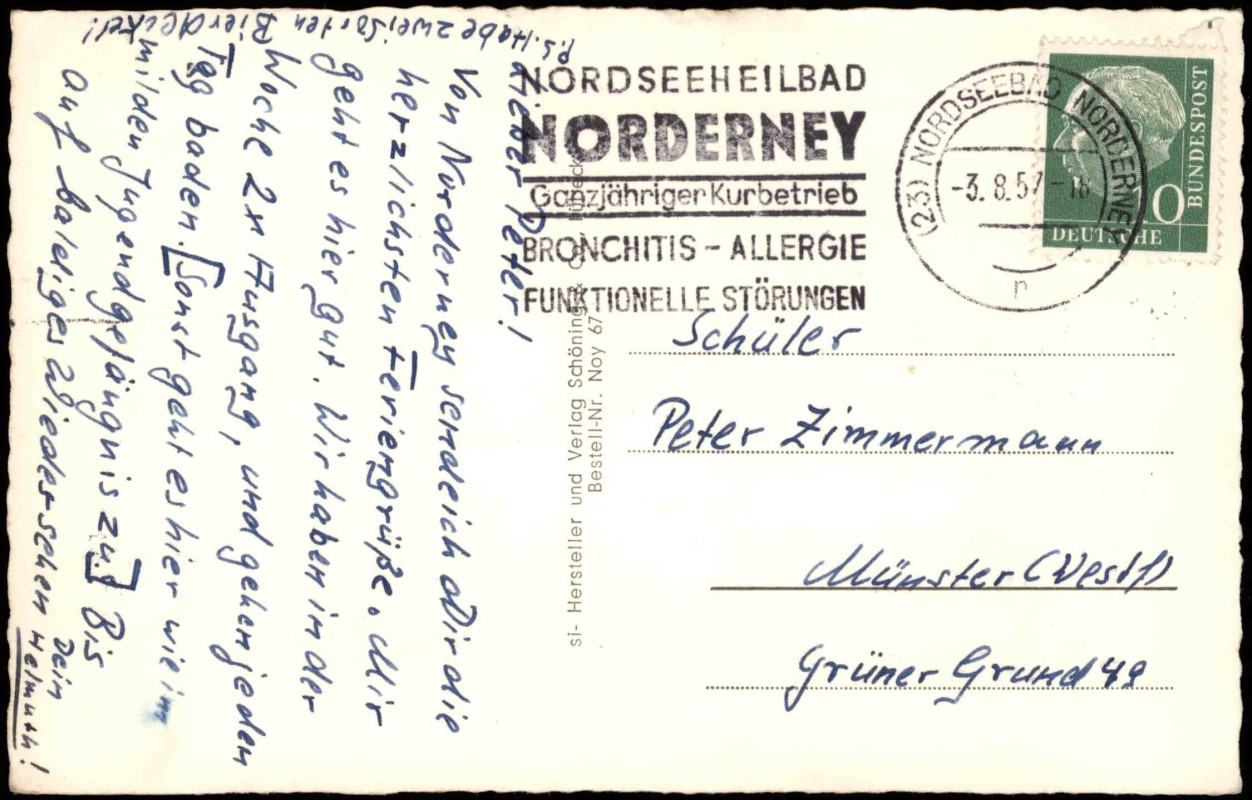 Lieber Peter!
Von Norderney sende ich Dir die
herzlichsten Feriengrüße. Mir
geht es hier gut. Wir haben in der
Woche 2x Ausgang, und gehen jeden
Tag baden. [Sonst geht es hier wie im
milden Jugendgefängnis zu.] Bis
auf baldiges Wiedersehen
Dein
Helmuth!
P.S. Habe zwei Sorten Bierdeckel!
NORDSEEHEILBAD
NORDERNEY
Ganzjähriger Kurbetrieb
BRONCHITIS - ALLERGIE
FUNKTIONELLE STÖRUNGEN
(23) NORDSEEBAD NORDERNEY
-3.8.57-18
r
10
BUNDESPOST
DEUTSCHE
si- Hersteller und Verlag Schöning & Co., Lübeck
Bestell-Nr. Noy 67
Schüler
Peter Zimmermann
Münster (Westf)
Grüner Grund 49